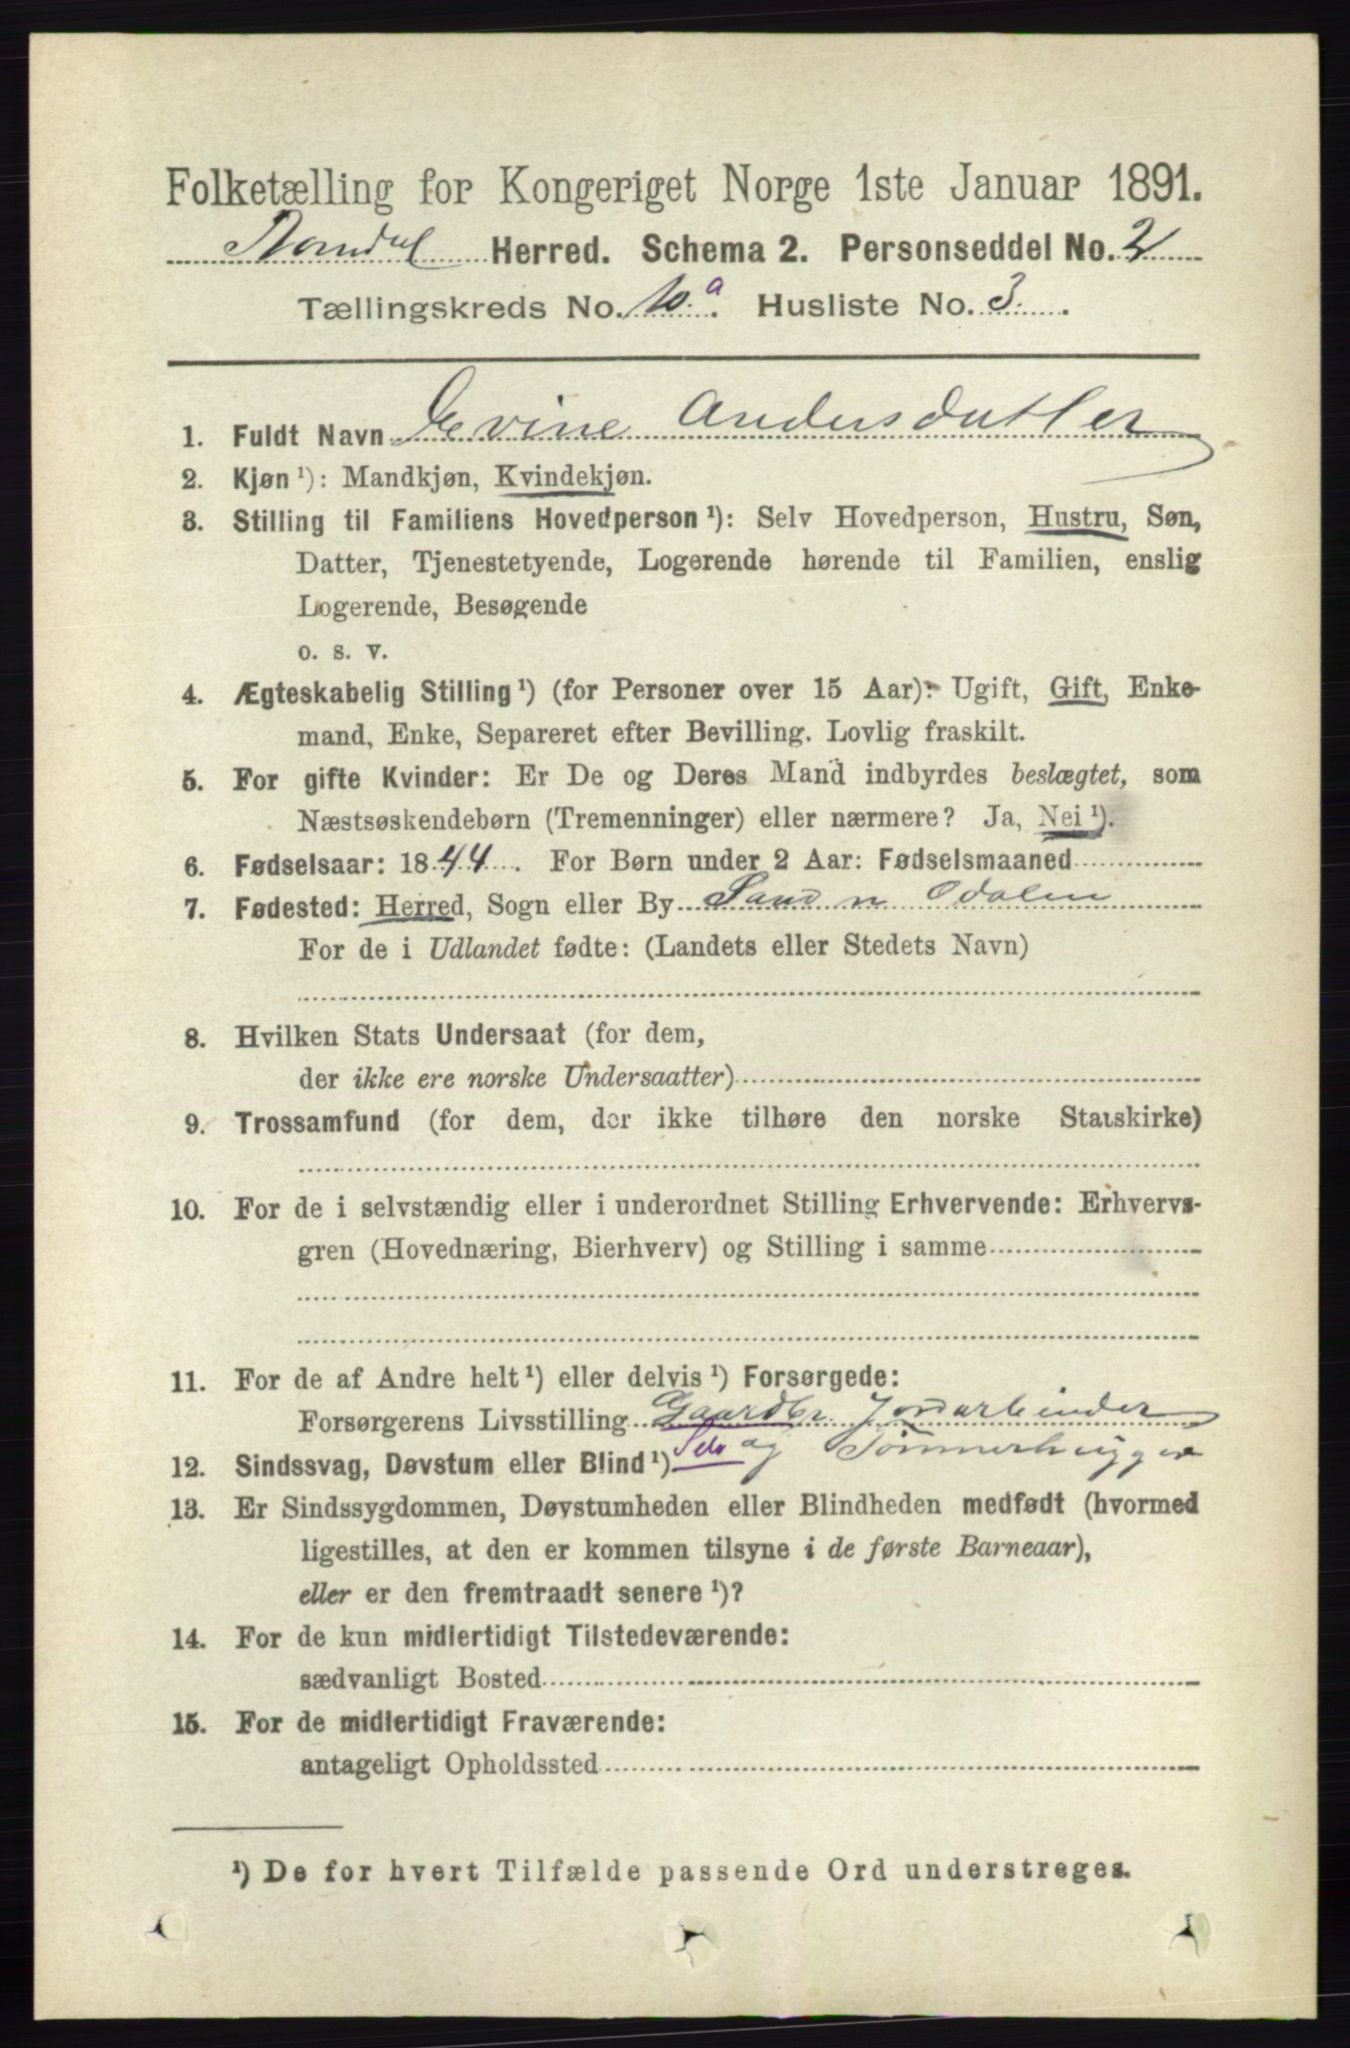 Folketælling for Kongeriget Norge 1ste Januar 1891.
Herred. Schema 2. Personseddel No. 2
Tællingskreds No. 10.a Husliste No. 3.
1. Fuldt Navn Evine Andersdatter
2. Kjøn ¹): Mandkjøn, Kvindekjøn.
3. Stilling til Familiens Hovedperson ¹): Selv Hovedperson, Hustru, Søn,
Datter, Tjenestetyende, Logerende hørende til Familien, enslig
Logerende, Besøgende
o. s. v.
4. Ægteskabelig Stilling ¹) (for Personer over 15 Aar): Ugift, Gift, Enke-
mand, Enke, Separeret efter Bevilling. Lovlig fraskilt.
5. For gifte Kvinder: Er De og Deres Mand indbyrdes beslægtet, som
Næstsøskendebørn (Tremenninger) eller nærmere? Ja, Nei ¹).
6. Fødselsaar: 1844. For Børn under 2 Aar: Fødselsmaaned
7. Fødested: Herred, Sogn eller By Sand n Odalen
For de i Udlandet fødte: (Landets eller Stedets Navn)
8. Hvilken Stats Undersaat (for dem,
der ikke ere norske Undersaatter)
9. Trossamfund (for dem, der ikke tilhøre den norske Statskirke)
10. For de i selvstændig eller i underordnet Stilling Erhvervende: Erhvervs-
gren (Hovednæring, Bierhverv) og Stilling i samme
11. For de af Andre helt ¹) eller delvis ¹) Forsørgede:
Forsørgerens Livsstilling Gaardbr. Jordarbeider
12. Sindssvag, Døvstum eller Blind ¹) Selv og Tømmerhugger
13. Er Sindssygdommen, Døvstumheden eller Blindheden medfødt (hvormed
ligestilles, at den er kommen tilsyne i de første Barneaar),
eller er den fremtraadt senere ¹)?
14. For de kun midlertidigt Tilstedeværende:
sædvanligt Bosted
15. For de midlertidigt Fraværende:
antageligt Opholdssted
¹) De for hvert Tilfælde passende Ord understreges.